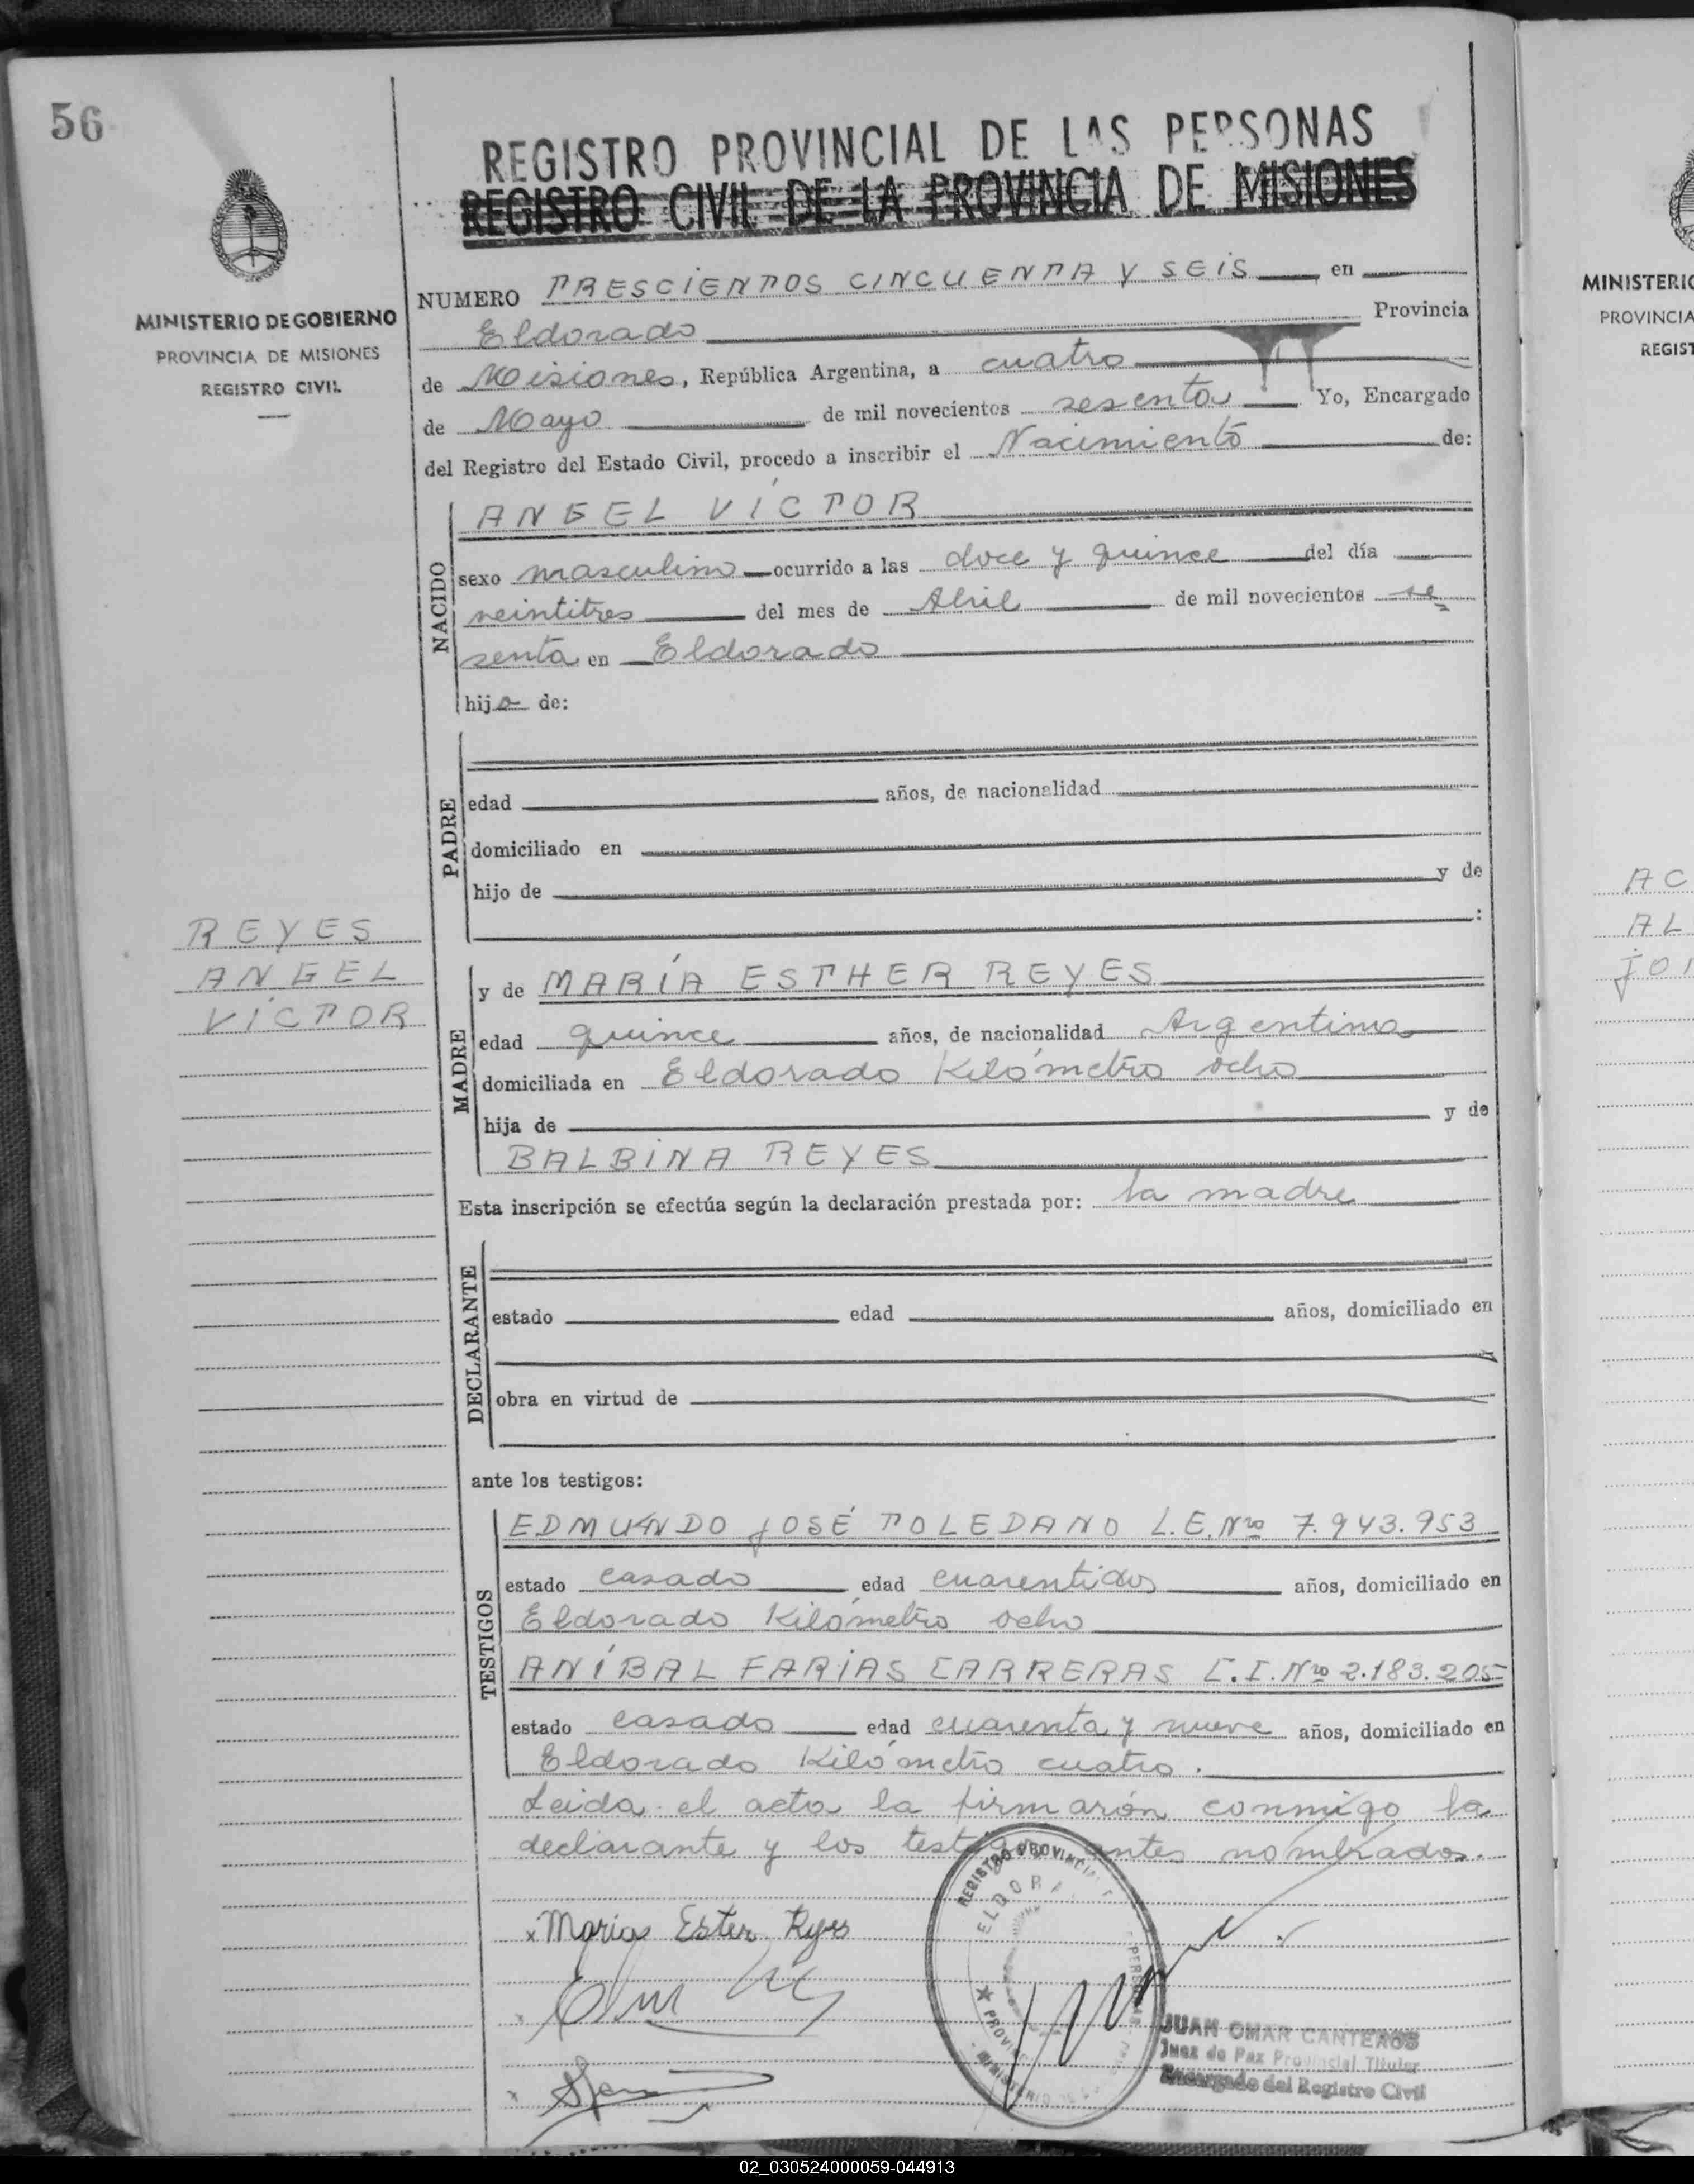 56
REGISTRO PROVINCIAL DE LAS PERSONAS
REGISTRO CIVIL DE LA PROVINCIA DE MISIONES
MINISTERIO DE GOBIERNO
PROVINCIA DE MISIONES
REGISTRO CIVIL
NUMERO TRESCIENTOS CINCUENTA Y SEIS en
Eldorado Provincia
de Misiones, República Argentina, a cuatro
de Mayo de mil novecientos sesenta Yo, Encargado
del Registro del Estado Civil, procedo a inscribir el Nacimiento de:
NACIDO
ANGEL VÍCTOR
sexo masculino ocurrido a las doce y quince del día
veintitres del mes de Abril de mil novecientos se
senta en Eldorado
hijo de:
PADRE
edad años, de nacionalidad
domiciliado en
hijo de y de
:
REYES
ANGEL
VÍCTOR
MADRE
y de MARÍA ESTHER REYES
edad quince años, de nacionalidad Argentina
domiciliada en Eldorado Kilómetro ocho
hija de y de
BALBINA REYES
Esta inscripción se efectúa según la declaración prestada por: la madre
DECLARANTE
estado edad años, domiciliado en
obra en virtud de
ante los testigos:
TESTIGOS
EDMUNDO JOSÉ TOLEDANO L.E. Nro 7.943.953
estado casado edad cuarentidos años, domiciliado en
Eldorado Kilómetro ocho
ANÍBAL FARIAS CARRERAS C.I. Nro 2.183.205
estado casado edad cuarenta y nueve años, domiciliado en
Eldorado Kilómetro cuatro.
Leida el acta la firmarón conmigo la
declarante y los testigos antes nombrados.
x Maria Ester Reyes
REGISTRO PROVINCIAL
JUAN OMAR CANTEROS
Juez de Paz Provincial Titular
Encargado del Registro Civil
MINISTERIO
PROVINCIA
REGIST
AC
AL
JO
02_030524000059-044913